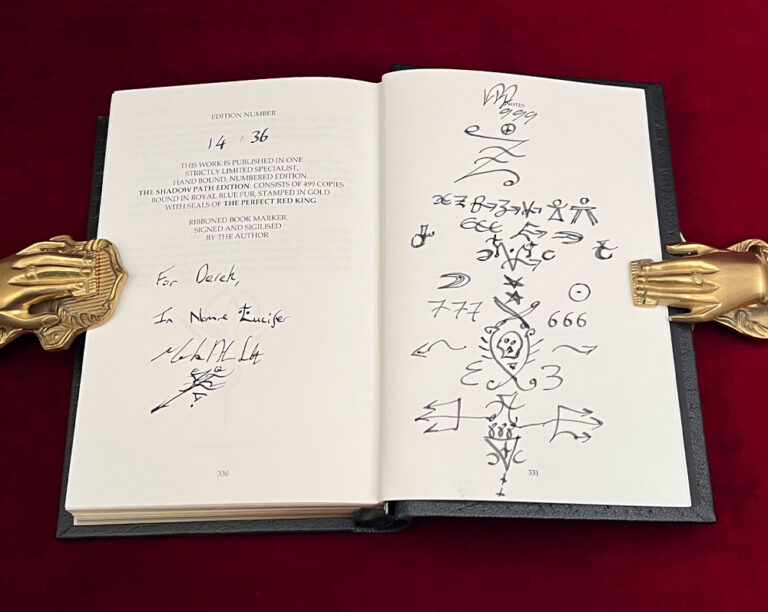 EDITION NUMBER
14 / 36
THIS WORK IS PUBLISHED IN ONE
STRICTLY LIMITED SPECIALIST,
HAND BOUND, NUMBERED EDITION.
THE SHADOW PATH EDITION: CONSISTS OF 499 COPIES
BOUND IN ROYAL BLUE FUR, STAMPED IN GOLD
WITH SEALS OF THE PERFECT RED KING
RIBBONED BOOK MARKER
SIGNED AND SIGILISED
BY THE AUTHOR
For Derek,
In Nomine Lucifer
330
NOTES
999
777
666
331